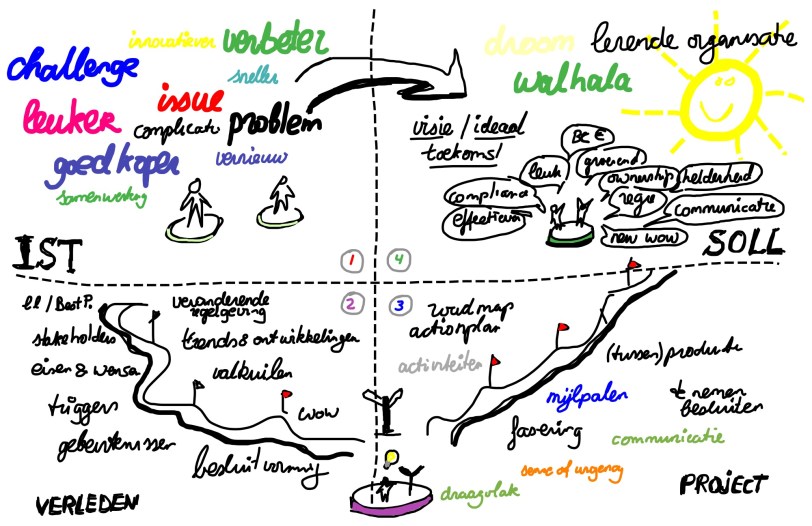 innovatiever
verbeter
challenge
sneller
issue
leuker
complicatie
problem
goedkoper
vernieuw
samenwerking
IST
1
droom
lerende organisatie
walhala
visie / ideaal
toekomst
BC €
leuk
groeiend
ownership
helderheid
compliance
regie
communicatie
effectiever
new wow
SOLL
4
2
ll / Best P.
veranderende
regelgeving
stakeholders
trends & ontwikkelingen
eisen & wensen
valkuilen
triggers
wow
gebeurtenissen
besluitvorming
VERLEDEN
3
roadmap
actionplan
activiteiten
(tussen) producten
mijlpalen
te nemen
besluiten
fasering
communicatie
sense of urgency
draagvlak
PROJECT